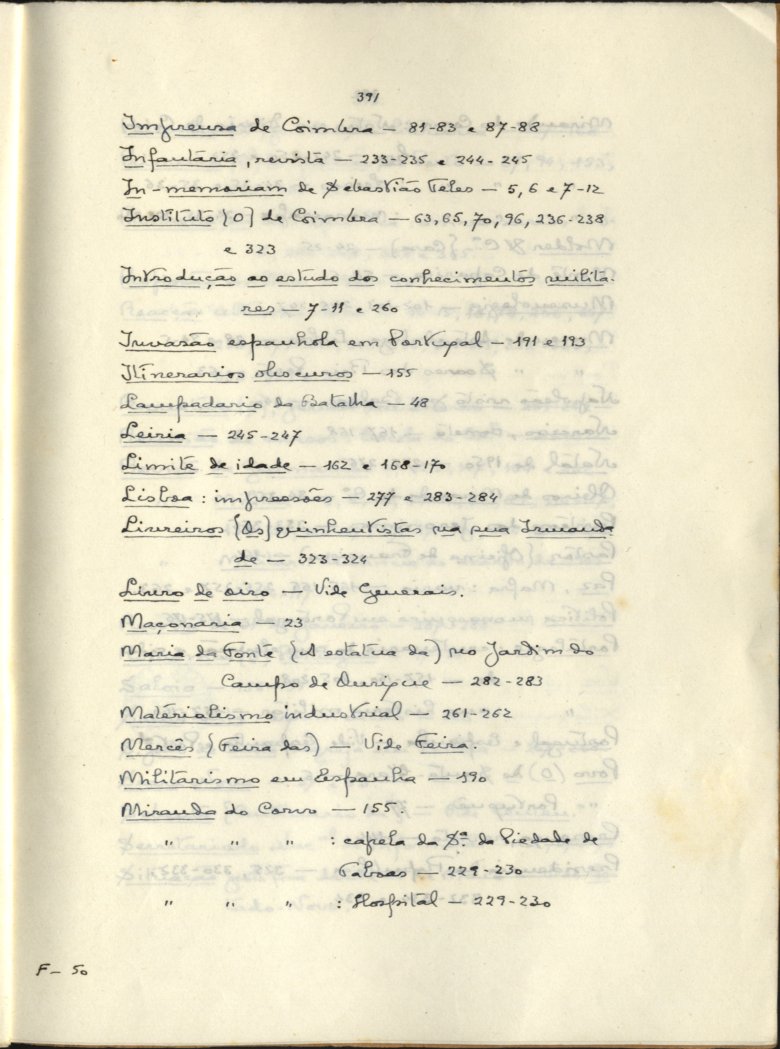 391
Imprensa de Coimbra — 81-83 e 87-88
Infantaria, revista — 233-235 e 244-245
In-memoriam de Sebastião Teles — 5, 6 e 7-12
Instituto (O) de Coimbra — 63, 65, 70, 96, 236-238
e 323
Introdução ao estudo dos conhecimentos milita-
res — 7-11 e 260
Invasão espanhola em Portugal — 191 e 193
Itinerarios obscuros — 155
Lampadario da Batalha — 48
Leiria — 245-247
Limite de idade — 162 e 168-170
Lisboa: impressões — 277 e 283-284
Livreiros (Os) quinhentistas na sua Irmanda
de — 323-324
Livro de oiro — Vide Generais.
Maçonaria — 23
Maria da Fonte (A estatua da) no Jardim do
Campo de Ourique — 282-283
Materialismo industrial — 261-262
Mercês (Feira das) — Vide Feira.
Militarismo em Espanha — 190
Miranda do Corvo — 155.
" " " : capela da Sª da Piedade de
Tabuas — 229-230
" " " : Hospital — 229-230
F — 50